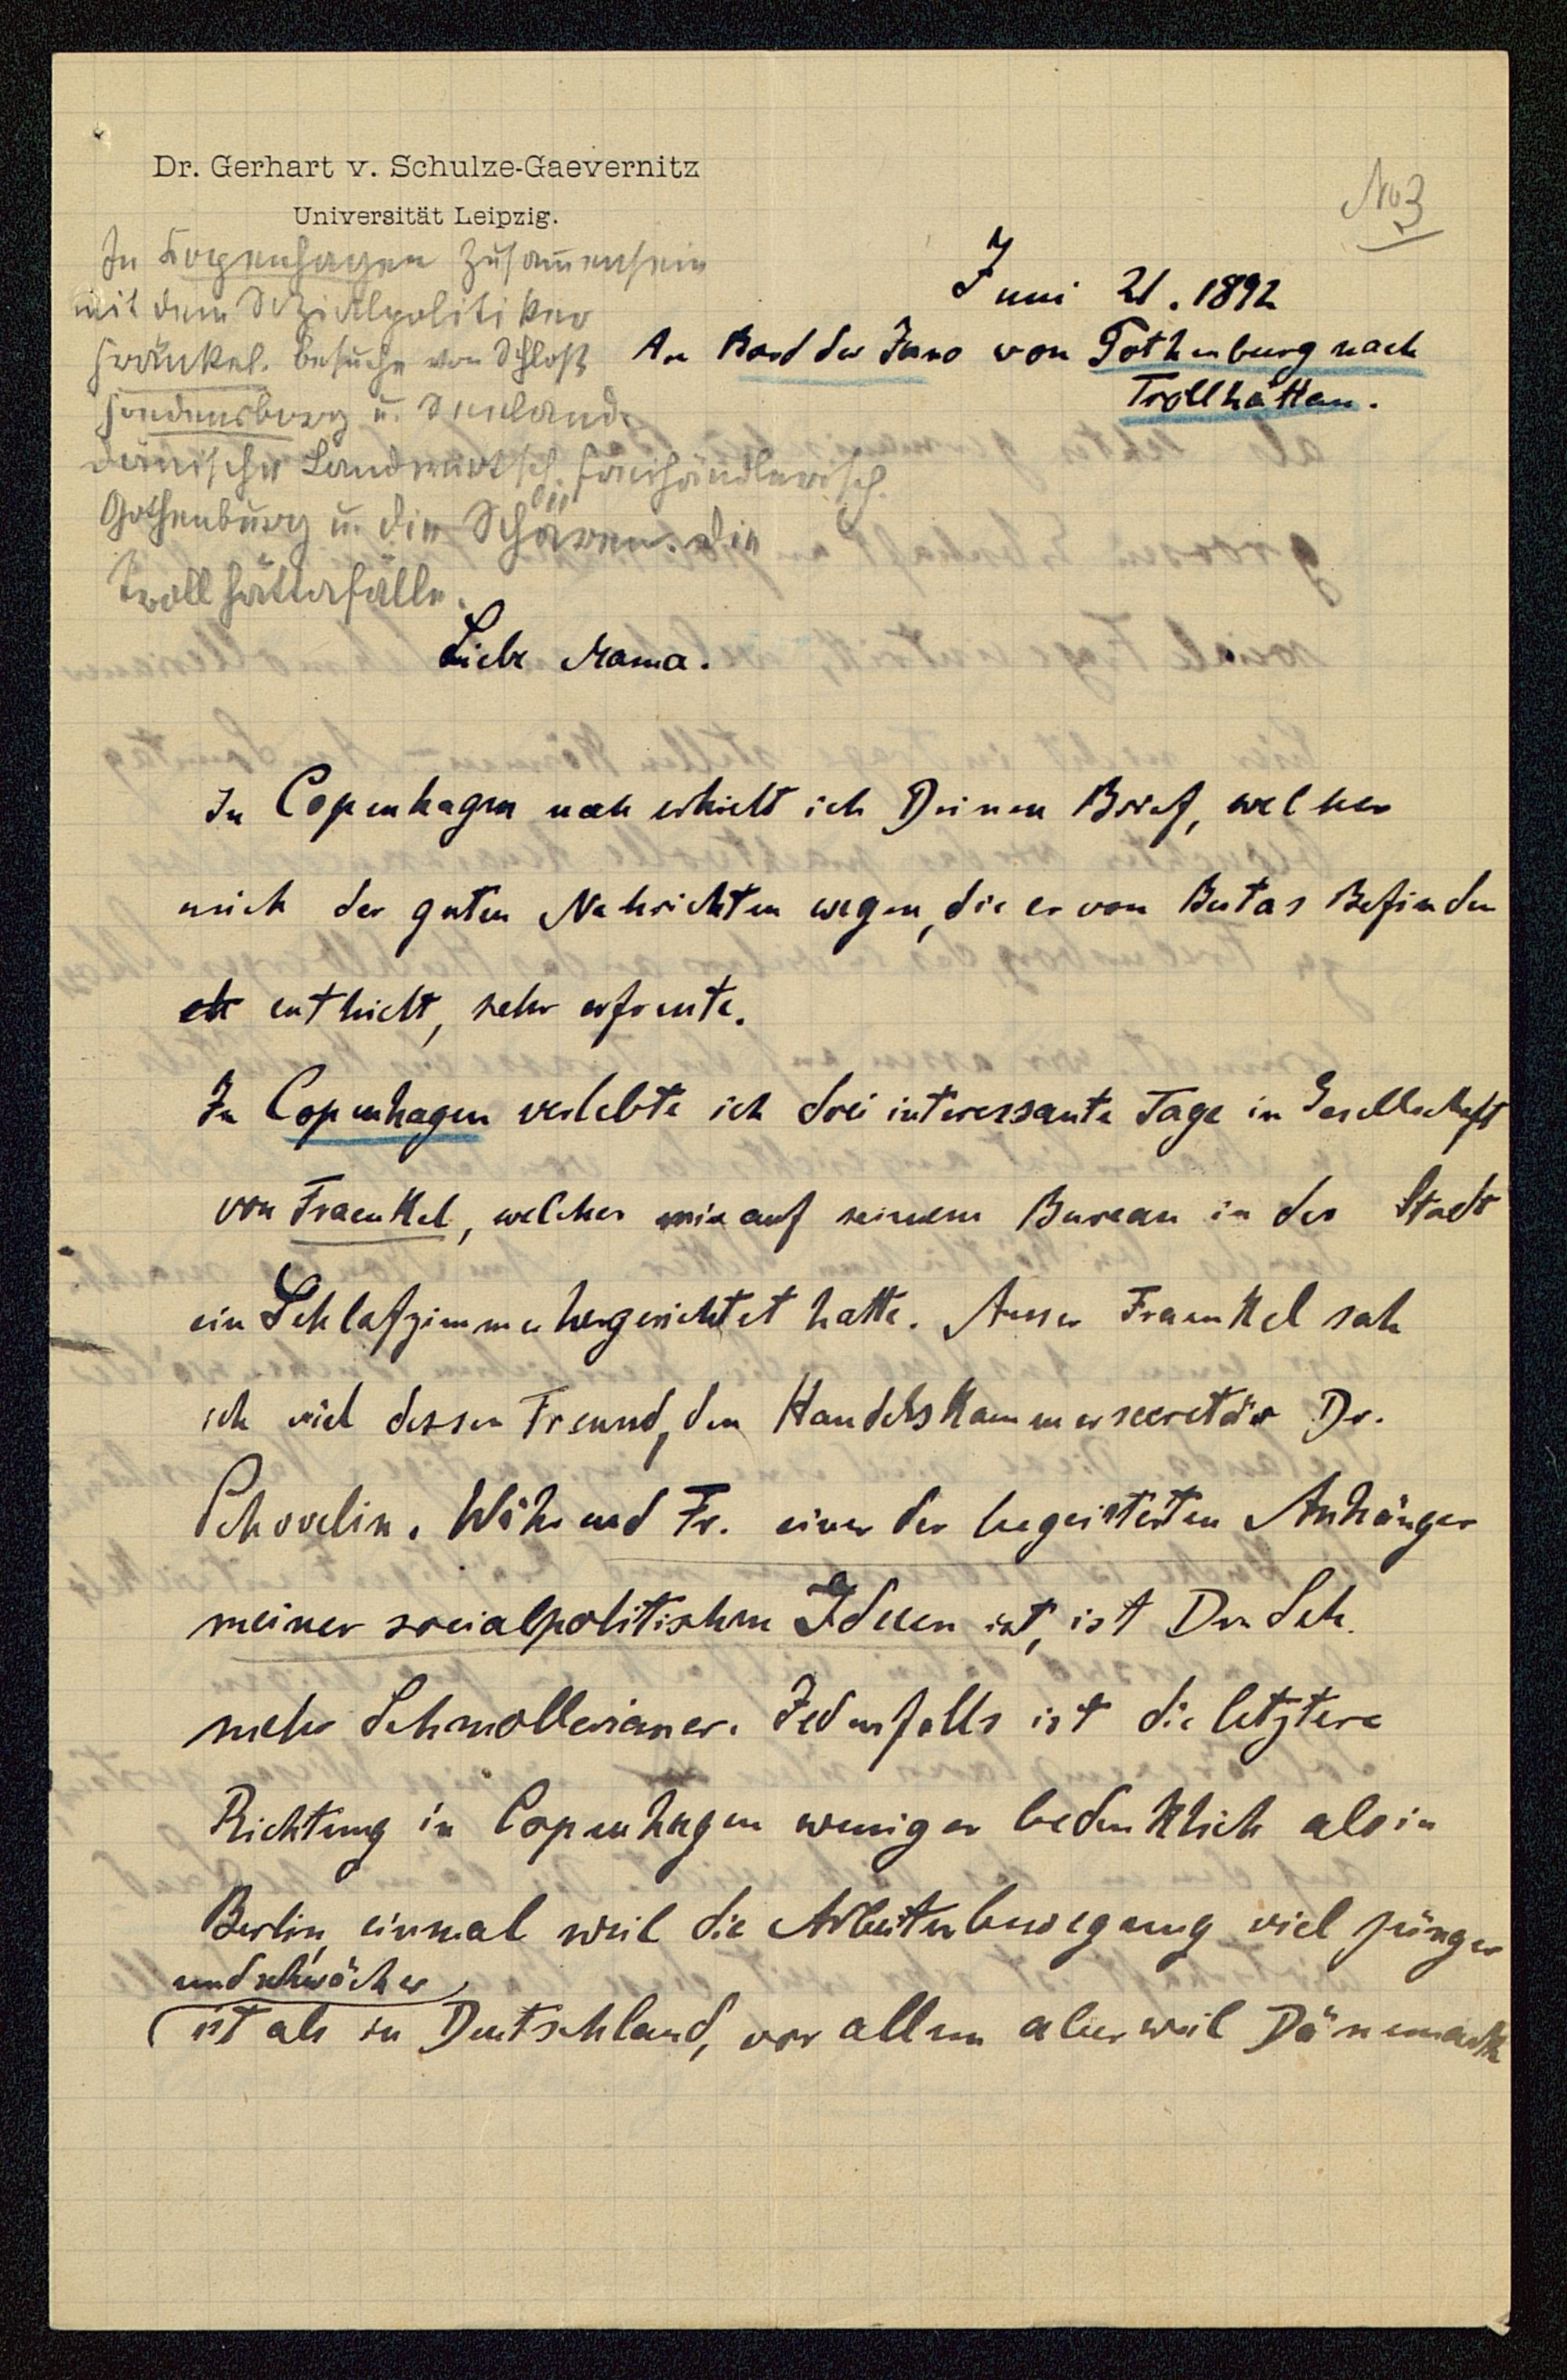 Dr. Gerhart v. Schulze-Gaevernitz
Universität Leipzig.
No 3
In Kopenhagen Zusammensein
mit dem Sozialpolitiker
Fränkel. Besuche von Schloß
u. Seeland.
dänische Landwirtsch. freihändlerisch.
Gothenburg u. die Schären. Die
Trollhättafälle.
Juni 21. 1892
An Bord der Juno von Gothenburg nach
Trollhätten.
Liebe Mama.
In Copenhagen noch erhielt ich Deinen Brief, welcher
mich der guten Nachrichten wegen, die er von Befinden
enthielt, sehr erfreute.
In Copenhagen verlebte ich drei interessante Tage in Gesellschaft
von Fraenkel, welcher mir auf seinem Bureau in der Stadt
ein Schlafzimmer hergerichtet hatte. Ausser Fraenkel sah
ich viel dessen Freund, den Handelskammersecretär Dr.
Schovelin. Während Fr. einer der begeisterten Anhänger
meiner socialpolitischen Ideen ist, ist Dr. Sch.
mehr Schmollerianer. Jedenfalls ist die letztere
Richtung in Copenhagen weniger bedenklich als in
Berlin, einmal weil die Arbeiterbewegung viel jünger
und schwächer
ist als in Deutschland, vor allem aber weil Dänemark